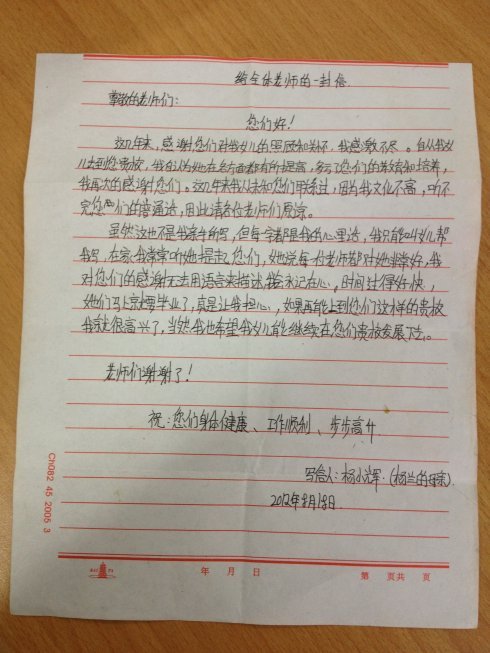 给全体老师的一封信
尊敬的老师们：
您们好！
这几年来，感谢您们对我女儿的照顾和关怀，我感激不尽。自从我女
儿去到您贵校，我自认为她在各方面都有所提高，多亏了您们的教育和培养，
我再次的感谢您们。这几年我从未和您们联系过，因为我文化不高，听不
完您们的普通话，因此请各位老师们原谅。
虽然这也不是我亲手所写，但每一字都是我的心里话，我只能叫女儿帮
我写，在家我常常听她提起您们，她说每一位老师都对她非常好，我
对您们的感谢无法用语言来描述，我会永记在心，时间过得好快，
她们马上就要毕业了，真是让我担心，如果再能上到您们这样的贵校
我就很高兴了，当然我也希望我女儿能继续在您们贵校发展下去。
老师们谢谢了！
祝：您们身体健康、工作顺利、步步高升
写信人：杨小辉（杨兰的母亲）
2012年8月18日
Ch082 45 2005 3
年 月 日
第 页共 页